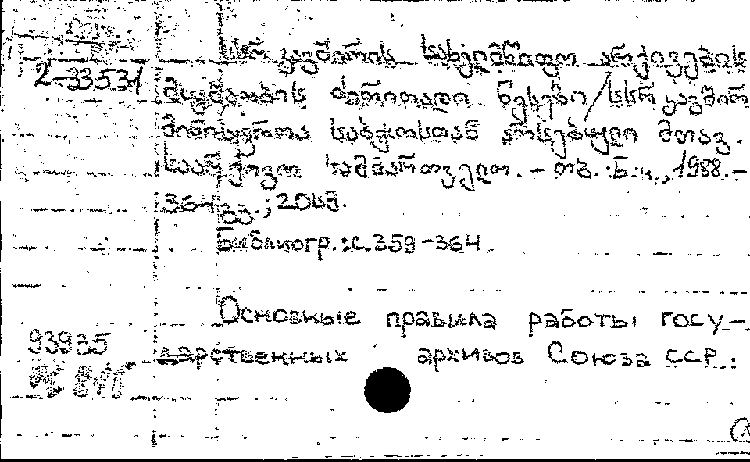 სსრ კავშირის სახელმწიფო არქივების
2-33531
მუშაობის ძირითადი წესები / სსრ კავშირ.
მინისტრთა საბჭოსთან არსებული მთავ.
საარქივო სამმართველო. – თბ. : Б. и., 1988. –
364 გვ. ; 20სმ.
Библиогр.: с. 359-364
Основные правила работы госу–
93935
дарственных архивов Союза ССР :